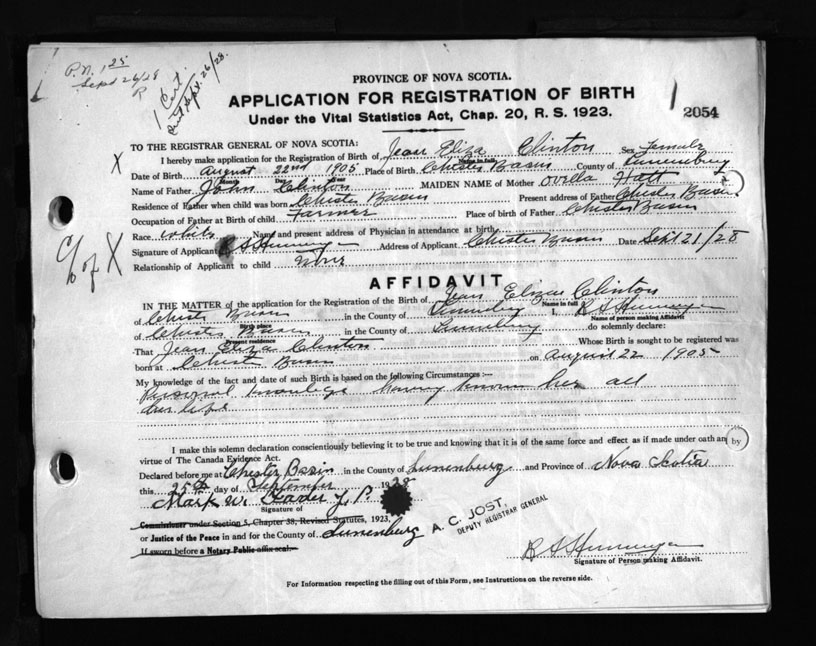 P.N. 1 25
Sept 26/28
R
1 Cert.
Sept. 26/28.
PROVINCE OF NOVA SCOTIA.
APPLICATION FOR REGISTRATION OF BIRTH
Under the Vital Statistics Act, Chap. 20, R. S. 1923.
2054
TO THE REGISTRAR GENERAL OF NOVA SCOTIA:
X I hereby make application for the Registration of Birth of Jean Eliza Clinton Sex Female
Name in full
Date of Birth August 22nd 1905 Place of Birth Chester Basin County of Lunenburg
Name of Father John Clinton MAIDEN NAME of Mother Ovilla Hatt
Residence of Father when child was born Chester Basin Present address of Father Chester Basin
Occupation of Father at Birth of child Farmer Place of birth of Father Chester Basin
Race white Name and present address of Physician in attendance at birth
Signature of Applicant Address of Applicant Chester Basin Date Sept 21/28
Relationship of Applicant to child None
C/o of X
AFFIDAVIT
IN THE MATTER of the application for the Registration of the Birth of Jean Eliza Clinton
Name in full
of Chester Basin in the County of Lunenburg I,
Birth place Name of person making Affidavit
of Chester Basin in the County of Lunenburg do solemnly declare:
Present residence
That Jean Eliza Clinton Whose Birth is sought to be registered was
born at Chester Basin on August 22 1905
My knowledge of the fact and date of such Birth is based on the following Circumstances :—
Personal knowledge Having known her all
her life
I make this solemn declaration conscientiously believing it to be true and knowing that it is of the same force and effect as if made under oath and by
virtue of The Canada Evidence Act.
Declared before me at Chester Basin in the County of Lunenburg and Province of Nova Scotia
this 25th day of September 1928
Mark W. J. P.
Signature of
Commissioner under Section 5, Chapter 38, Revised Statutes, 1923,
or Justice of the Peace in and for the County of Lunenburg
If sworn before a Notary Public affix seal.
A. C. JOST,
DEPUTY REGISTRAR GENERAL
Signature of Person making Affidavit.
For Information respecting the filling out of this Form, see Instructions on the reverse side.